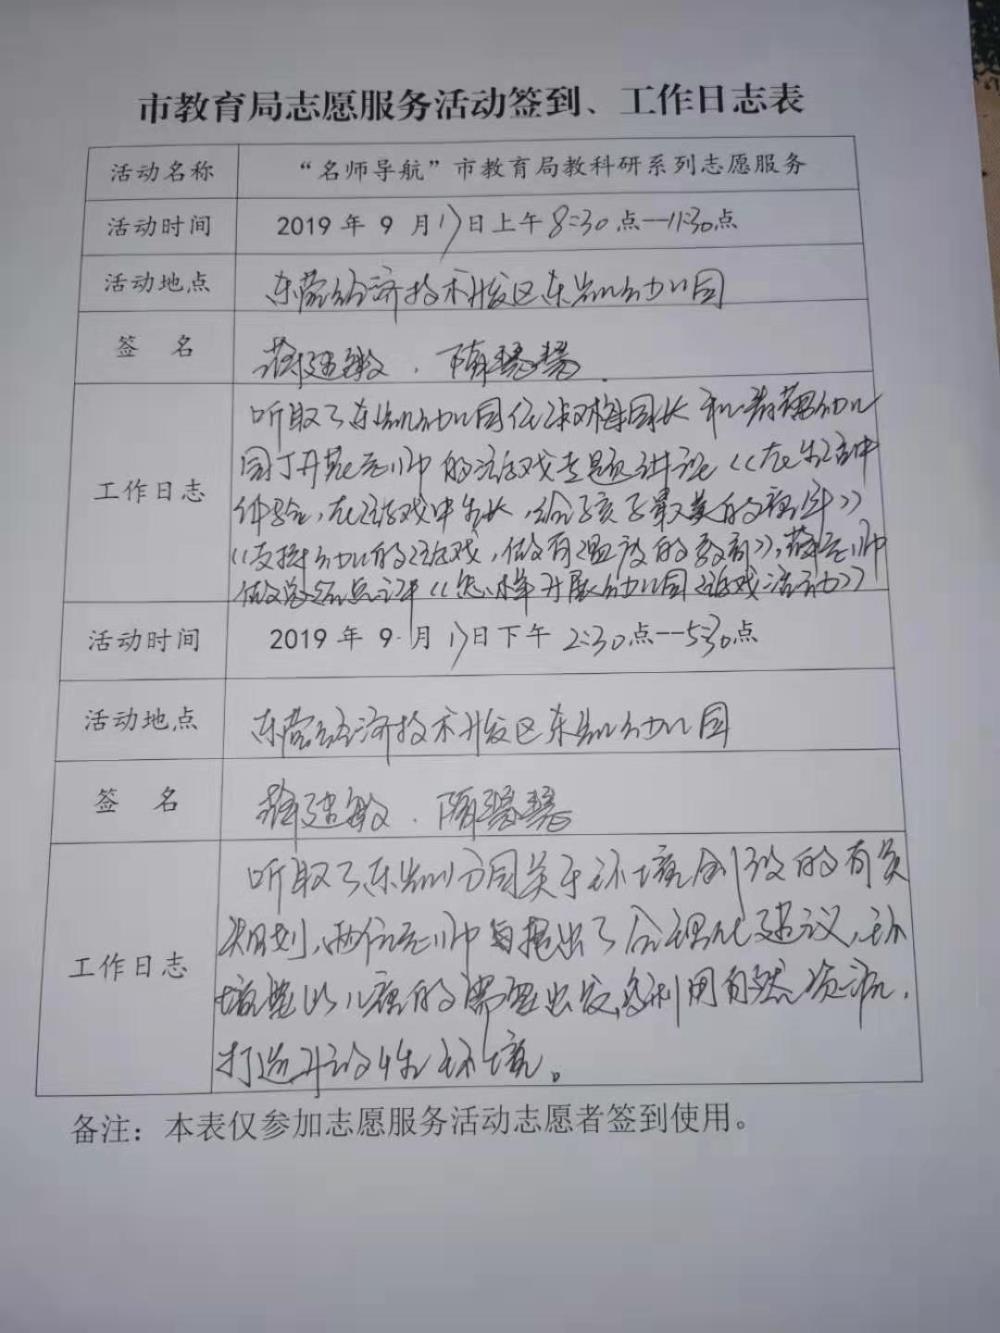 市教育局志愿服务活动签到、工作日志表
活动名称 “名师导航”市教育局教科研系列志愿服务
活动时间 2019 年 9 月 17日上午 8:30 点—11:30点
活动地点 东营经济技术开发区东凯幼儿园
签 名 薛建敏 . 隋琴琴.
工作日志
听取了东凯幼儿园任淑梅园长和青藤幼儿
园丁丹苑老师的游戏专题讲座《在生活中
体验,在游戏中生长,给孩子最美的童年》
《支持幼儿的游戏,做有温度的教育》,薛老师
做总结点评《怎样开展幼儿园游戏活动》
活动时间 2019 年 9 月 17日下午 2:30点—5:30点
活动地点 东营经济技术开发区东凯幼儿园
签 名 薛建敏 . 隋琴琴
工作日志
听取了东凯分园关于环境创设的有关
规划,两位老师提出了合理化建议,环
境要以儿童的需要出发,多利用自然资源,
打造开放性环境。
备注：本表仅参加志愿服务活动志愿者签到使用。